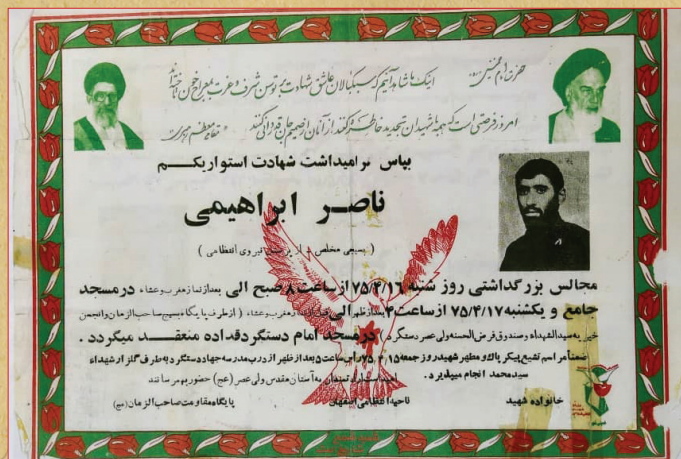 حضرت امام خمینی
اینک ما شاهد آنیم که سبکبالان عاشق شهادت بر توسن شرف و عزت بمعراج خون تاخته‌اند
امروز فرصتی است که همه با شهیدان تجدید خاطره کنند از آنان از صمیم جان قدردانی کنند
مقام معظم رهبری
بپاس گرامیداشت شهادت استواریکم
ناصر ابراهیمی
( بسیجی مخلص از پرسنل نیروی انتظامی )
مجالس بزرگداشتی روز شنبه ۷۵/۴/۱۶ از ساعت ۸ صبح الی بعد از نماز مغرب و عشاء در مسجد
جامع و یکشنبه ۷۵/۴/۱۷ از ساعت ۴ بعد از ظهر الی بعد از نماز مغرب و عشاء ( از طرف پایگاه بسیج صاحب الزمان و انجمن
خیریه سیدالشهداء و صندوق قرض الحسنه ولی عصر دستگرد ) در مسجد امام دستگرد قداده منعقد میگردد .
ضمنا مراسم تشییع پیکر پاک و مطهر شهید روز جمعه ۷۵/۴/۱۵ راس ساعت ۵ بعد از ظهر از درب مدرسه جهاد دستگرد به طرف گلزار شهداء
سید محمد انجام میپذیرد .
امید است ارادتمندان به آستان مقدس ولی عصر (عج) حضور بهم رسانند
خانواده شهید
ناحیه انتظامی اصفهان
پایگاه مقاومت صاحب الزمان (عج)